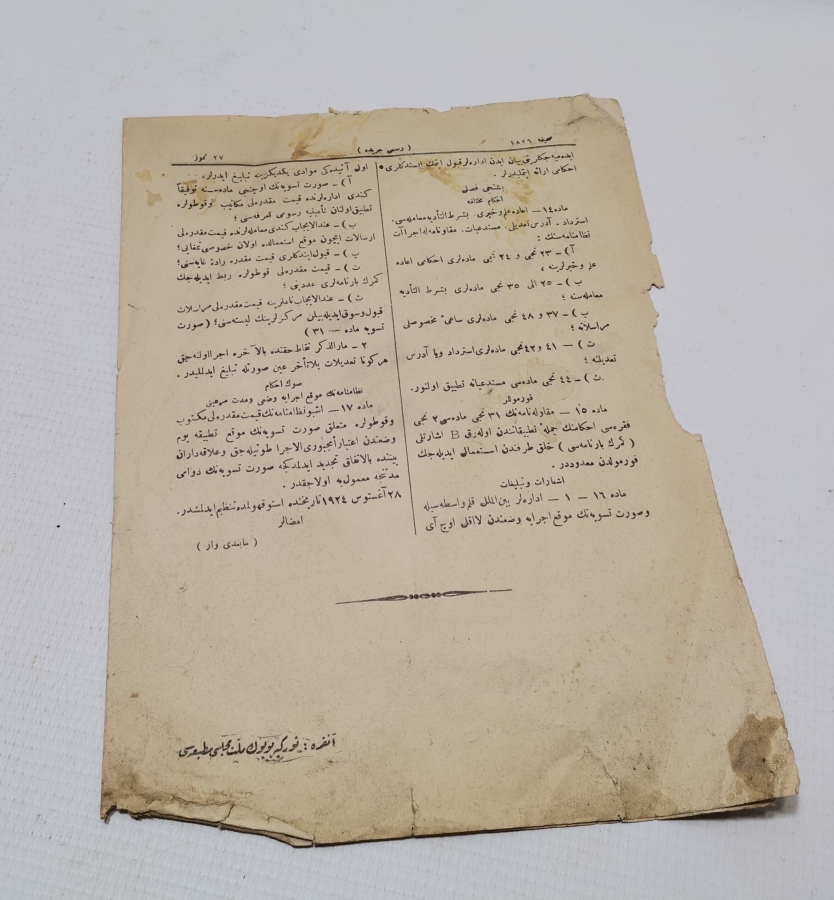 صحیفه ١٨٢٦
( رسمی جریده )
٢٧ تموز
ایده میه جکلرینی بیان ایدن اداره لر قبول ایتمك ایستدکلری
احکامی ارائه ایدرلر .
بشنجی فصل
احکام مختلفه
ماده ١٤ — اعاده علم وخبری . بشرط التأدیه معامله سی.
استرداد . آدرس تعدیلی . مستدعیات . مقاوله نامه له اجراآت
نظامنامه سنك :
آ ) — ٢٣ نجی و ٢٤ نجی ماده لری احکامی اعاده
علم وخبرلرینه ،
ب ) — ٢٥ الی ٣٥ نجی ماده لری بشرط التأدیه
معامله سنه ؛
پ ) — ٣٧ و ٤٨ نجی ماده لری ساعیٔ مخصوصلی
مراسلاته ؛
ت ) — ٤١ و ٤٢ نجی ماده لری استرداد ویا آدرس
تعدیلنه ؛
ث ) — ٤٤ نجی ماده سی مستدعیاته تطبیق اولنور.
فورمولر
ماده ١٥ — مقاوله نامه نك ٣١ نجی ماده سی ٢ نجی
فقره سی احکامنك جملهٔ تطبیقاتندن اوله رق B اشارتلی
( کمرك بارنامه سی ) خلق طرفندن استعمال ایدیله جك
فورمولردن معدوددر .
اشعارات وتبلیغات
ماده ١٦ — ١ — اداره لر بین الملل قلم واسطه سیله
وصورت تسویه نك موقع اجرایه وضعندن لااقل اوچ آی
اول آتیده کی موادی یکدیکرینه تبلیغ ایدرلر.
آ ) — صورت تسویه نك اوچنجی ماده سنه توفیقاً
کندی اداره لرنده قیمت مقدره لی مکاتیب وقوطولره
تطبیق اولنان تأمینیه رسومی تعرفه سنی ؛
ب ) — عندالایجاب کندی معامله لرنده قیمت مقدره لی
ارسالات ایچون موقع استعمالده اولان خصوصی تمغایی ؛
پ ) — قبول ایتدکلری قیمت مقدره راده غایه سنی ؛
ت ) — قیمت مقدره لی قوطولره ربط ایدیله جك
کمرك بارنامه لری عددینی ؛
ث ) — عندالایجاب ناملرینه قیمت مقدره لی مراسلات
قبول وسوق ایدیله بیلن مرکزلرینك لیسته سنی ؛ ( صورت
تسویه ماده — ٣١ )
٢ — مارالذکر نقاط حقنده بالآخره اجرا اولنه جق
هرکونا تعدیلات بلاتأخر عین صورتله تبلیغ ایدلملیدر .
صوك احکام
نظامنامه نك موقع اجرایه وضعی ومدت مرعیتی
ماده ١٧ — اشبو نظامنامه نك قیمت مقدره لی مکتوب
وقوطولره متعلق صورت تسویه نك موقع تطبیقه یوم
وضعندن اعتباراً مجبوری الاجرا طوتیله جق وعلاقه داران
بیننده بالاتفاق تجدید ایدلمدکجه صورت تسویه نك دوامی
مدتنجه معمول به اولاجقدر .
٢٨ آغستوس ١٩٢٤ تاریخنده استوقهولمده تنظیم ایدلمشدر.
امضالر
( مابعدی وار )
آنقره : تورکیه بویوك ملت مجلسی مطبعه سی